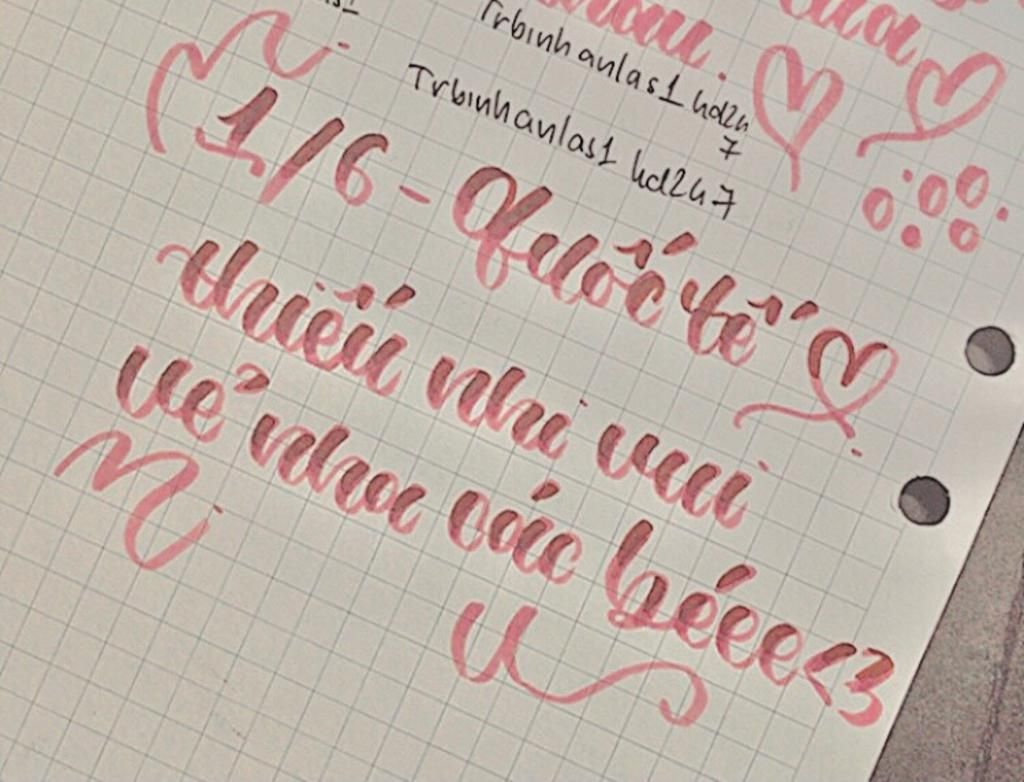 Trbinhanlas1 hd2h
7
Trbinhanlas1 hd2h7
1/6 - Quốc tế
thiếu nhi vui
vẻ nha các béee<3